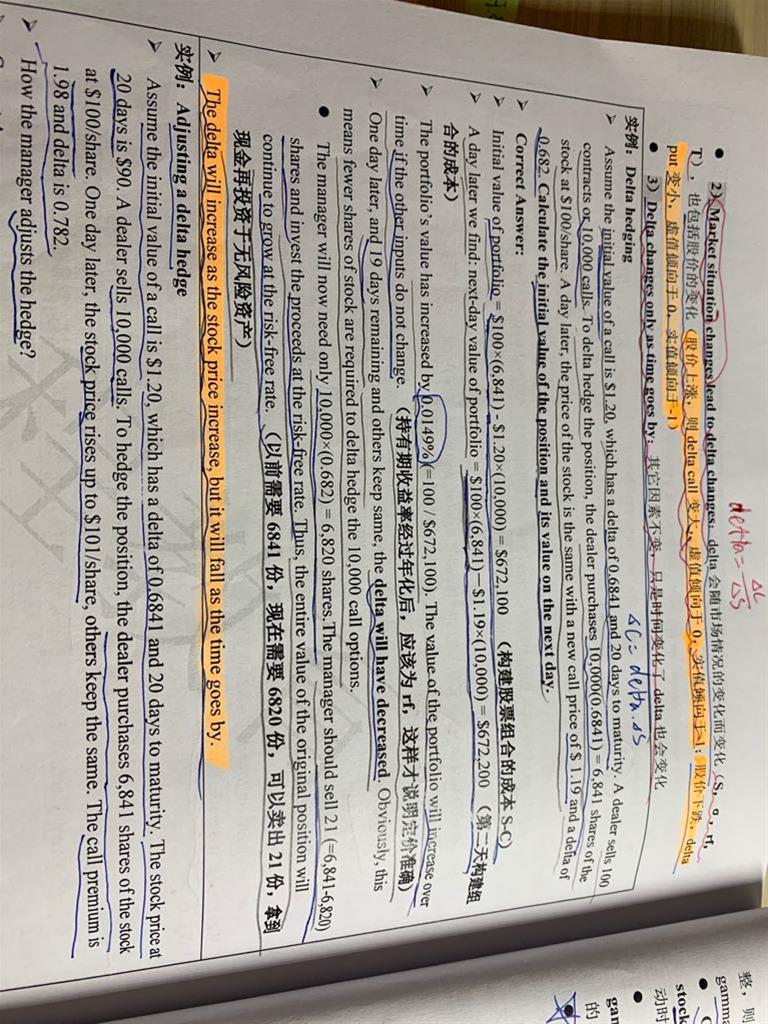 delta = ΔC/ΔS
● 2) Market situation changes lead to delta changes: delta 会随市场情况的变化而变化（S, σ, rf,
T），也包括股价的变化（股价上涨，则 delta call 变大，虚值倾向于 0，实值倾向于 1；股价下跌，delta
put 变小，虚值倾向于 0，实值倾向于-1）
● 3) Delta changes only as time goes by: 其它因素不变，只是时间变化了 delta 也会变化
ΔC = delta·ΔS
实例：Delta hedging
➢ Assume the initial value of a call is $1.20, which has a delta of 0.6841 and 20 days to maturity. A dealer sells 100
contracts or 10,000 calls. To delta hedge the position, the dealer purchases 10,000(0.6841) = 6,841 shares of the
stock at $100/share. A day later, the price of the stock is the same with a new call price of $ 1.19 and a delta of
0.682. Calculate the initial value of the position and its value on the next day.
➢ Correct Answer:
➢ Initial value of portfolio = $100×(6,841) - $1.20×(10,000) = $672,100 （构建股票组合的成本 S-C）
➢ A day later we find: next-day value of portfolio = $100×(6,841) − $1.19×(10,000) = $672,200 （第二天构建组
合的成本）
➢ The portfolio's value has increased by 0.0149% (=100 / $672,100). The value of the portfolio will increase over
time if the other inputs do not change. （持有期收益率经过年化后，应该为 rf，这样才说明定价准确）
➢ One day later, and 19 days remaining and others keep same, the delta will have decreased. Obviously, this
means fewer shares of stock are required to delta hedge the 10,000 call options.
● The manager will now need only 10,000×(0.682) = 6,820 shares.The manager should sell 21 (=6,841-6,820)
shares and invest the proceeds at the risk-free rate. Thus, the entire value of the original position will
continue to grow at the risk-free rate. （以前需要 6841 份，现在需要 6820 份，可以卖出 21 份，拿到
现金再投资于无风险资产）
➢ The delta will increase as the stock price increase, but it will fall as the time goes by.
实例：Adjusting a delta hedge
➢ Assume the initial value of a call is $1.20, which has a delta of 0.6841 and 20 days to maturity. The stock price at
20 days is $90. A dealer sells 10,000 calls. To hedge the position, the dealer purchases 6,841 shares of the stock
at $100/share. One day later, the stock price rises up to $101/share, others keep the same. The call premium is
1.98 and delta is 0.782.
➢ How the manager adjusts the hedge?
整，则
gamma
stock
动时
gam
的